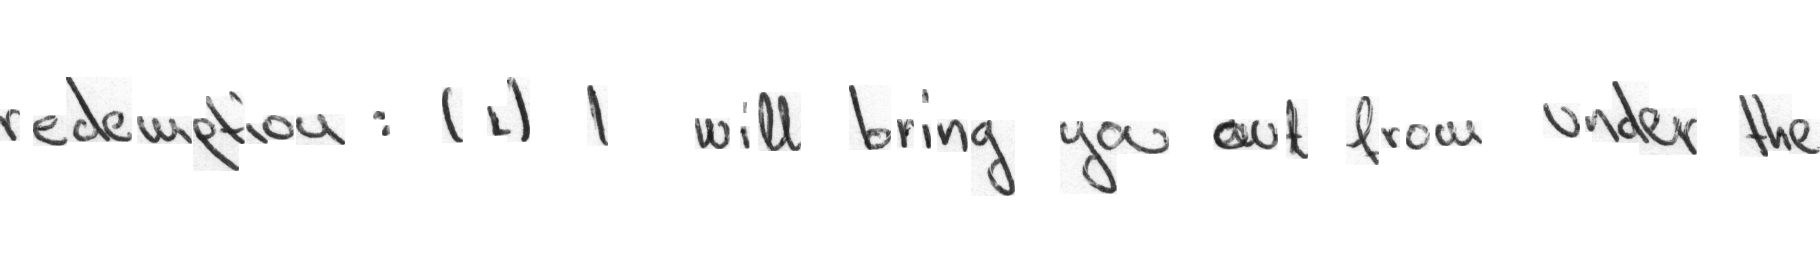 redemption: (1) I will bring you out from under the